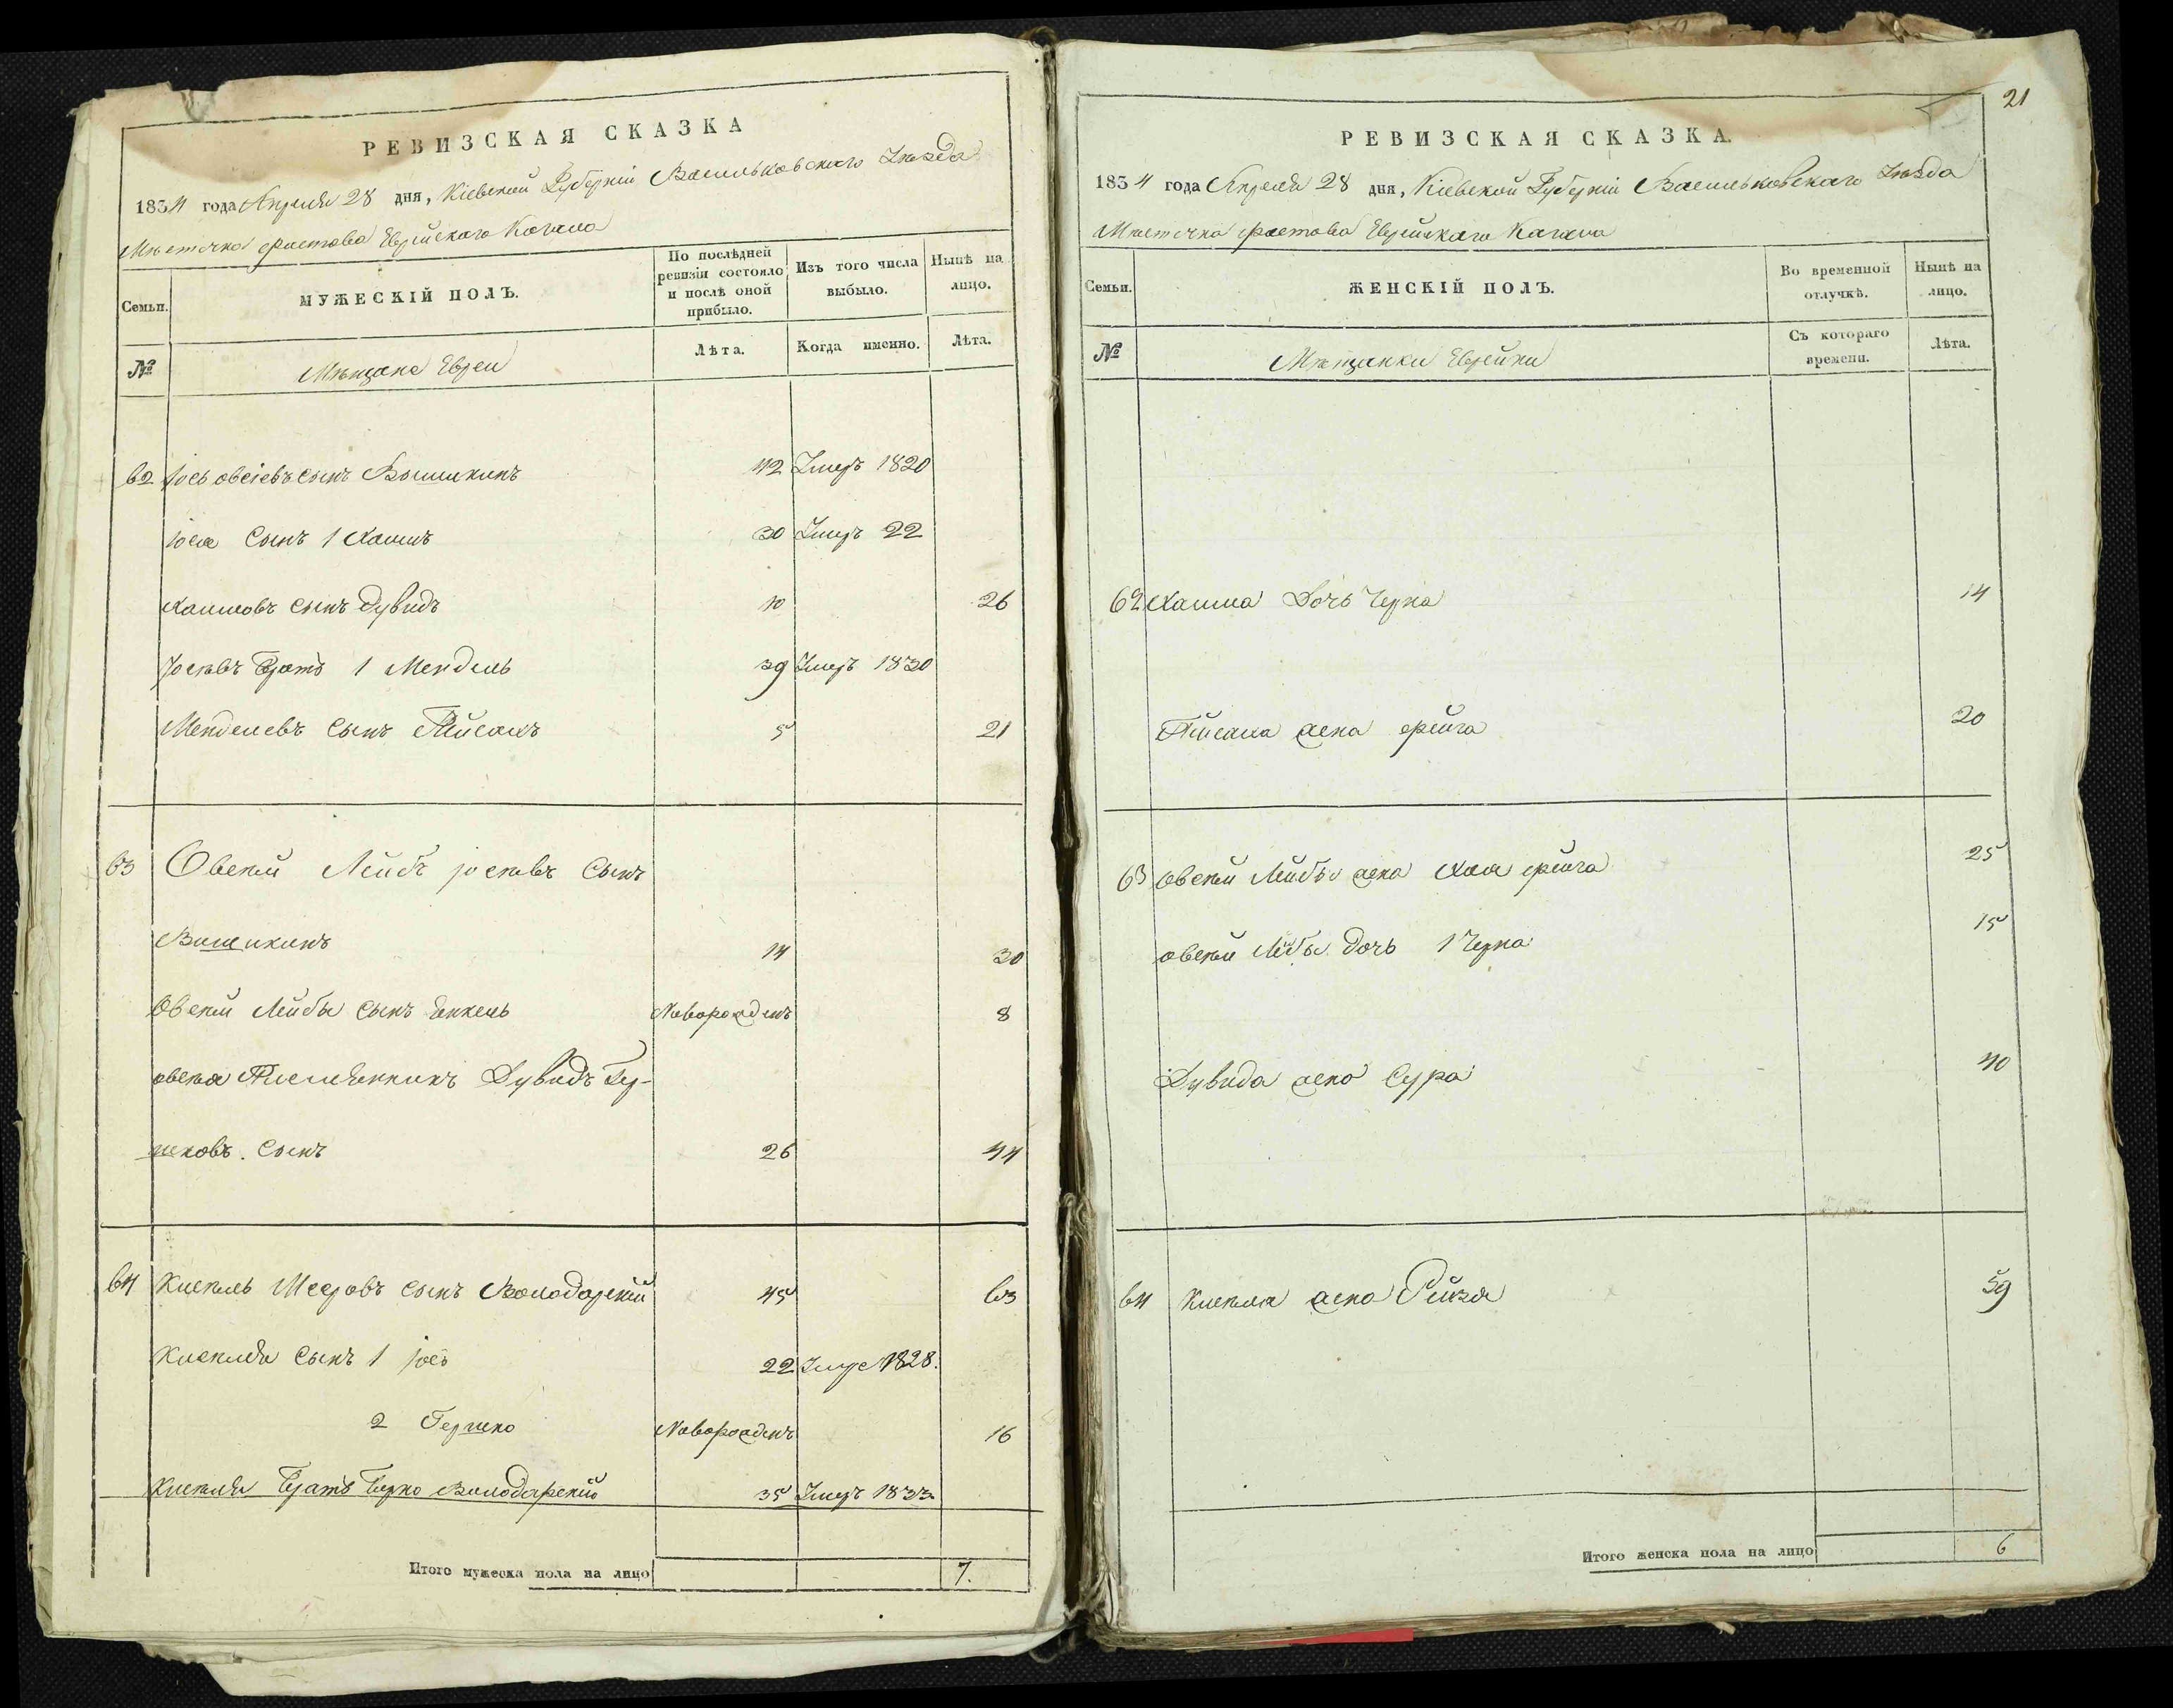 РЕВИЗСКАЯ СКАЗКА
1834 года Апреля 28 дня, Кіевской Губерніи Васильковскаго Уѣзда
Мѣстечка Фастова Еврейскаго Кагала
Семьи.
МУЖЕСКІЙ ПОЛЪ.
По послѣдней ревизіи состояло и послѣ оной прибыло.
Изъ того числа выбыло.
Нынѣ на лицо.
№
Мѣщане Евреи
Лѣта.
Когда именно.
Лѣта.
62 Іось Овсіевъ сынъ 42 Умеръ 1820
Іося Сынъ 1 Хаимъ 30 Умеръ 22
Хаимовъ сынъ Дувидъ 10 26
Іосювъ Братъ 1 Мендель 39 Умеръ 1830
Менделевъ Сынъ 5 21
63 Овсій Лейбъ Іосювъ Сынъ
14 30
Овсій Лейбы Сынъ Янкель Новорожденъ 8
Племянникъ Дувидъ Гер-
шковъ Сынъ 26 44
64 Кисиль Мееровъ сынъ Володарскій 45 63
Кисиля Сынъ 1 Іось 22 Умре 1828.
2 Гершко Новорожденъ 16
Кисиля Братъ Берко Володарскій 35 Умеръ 1833
Итого мужеска пола на лицо 7.
21
РЕВИЗСКАЯ СКАЗКА.
1834 года Апреля 28 дня, Кіевской Губерніи Васильковскаго Уѣзда
Мѣстечка Фастова Еврейскаго Кагала
Семьи.
ЖЕНСКІЙ ПОЛЪ.
Во временной отлучкѣ.
Нынѣ на лицо.
№
Мѣщанки Еврейки
Съ котораго времени.
Лѣта.
62 Хаима Дочь Черна 14
жена Фейга 20
63 Овсій Лейбы жена Хая Фейга 25
Овсій Лейбы дочь 1 Черна 15
Дувида жена Сура 40
64 Кисиля жена Рейзя 59
Итого женска пола на лицо 6